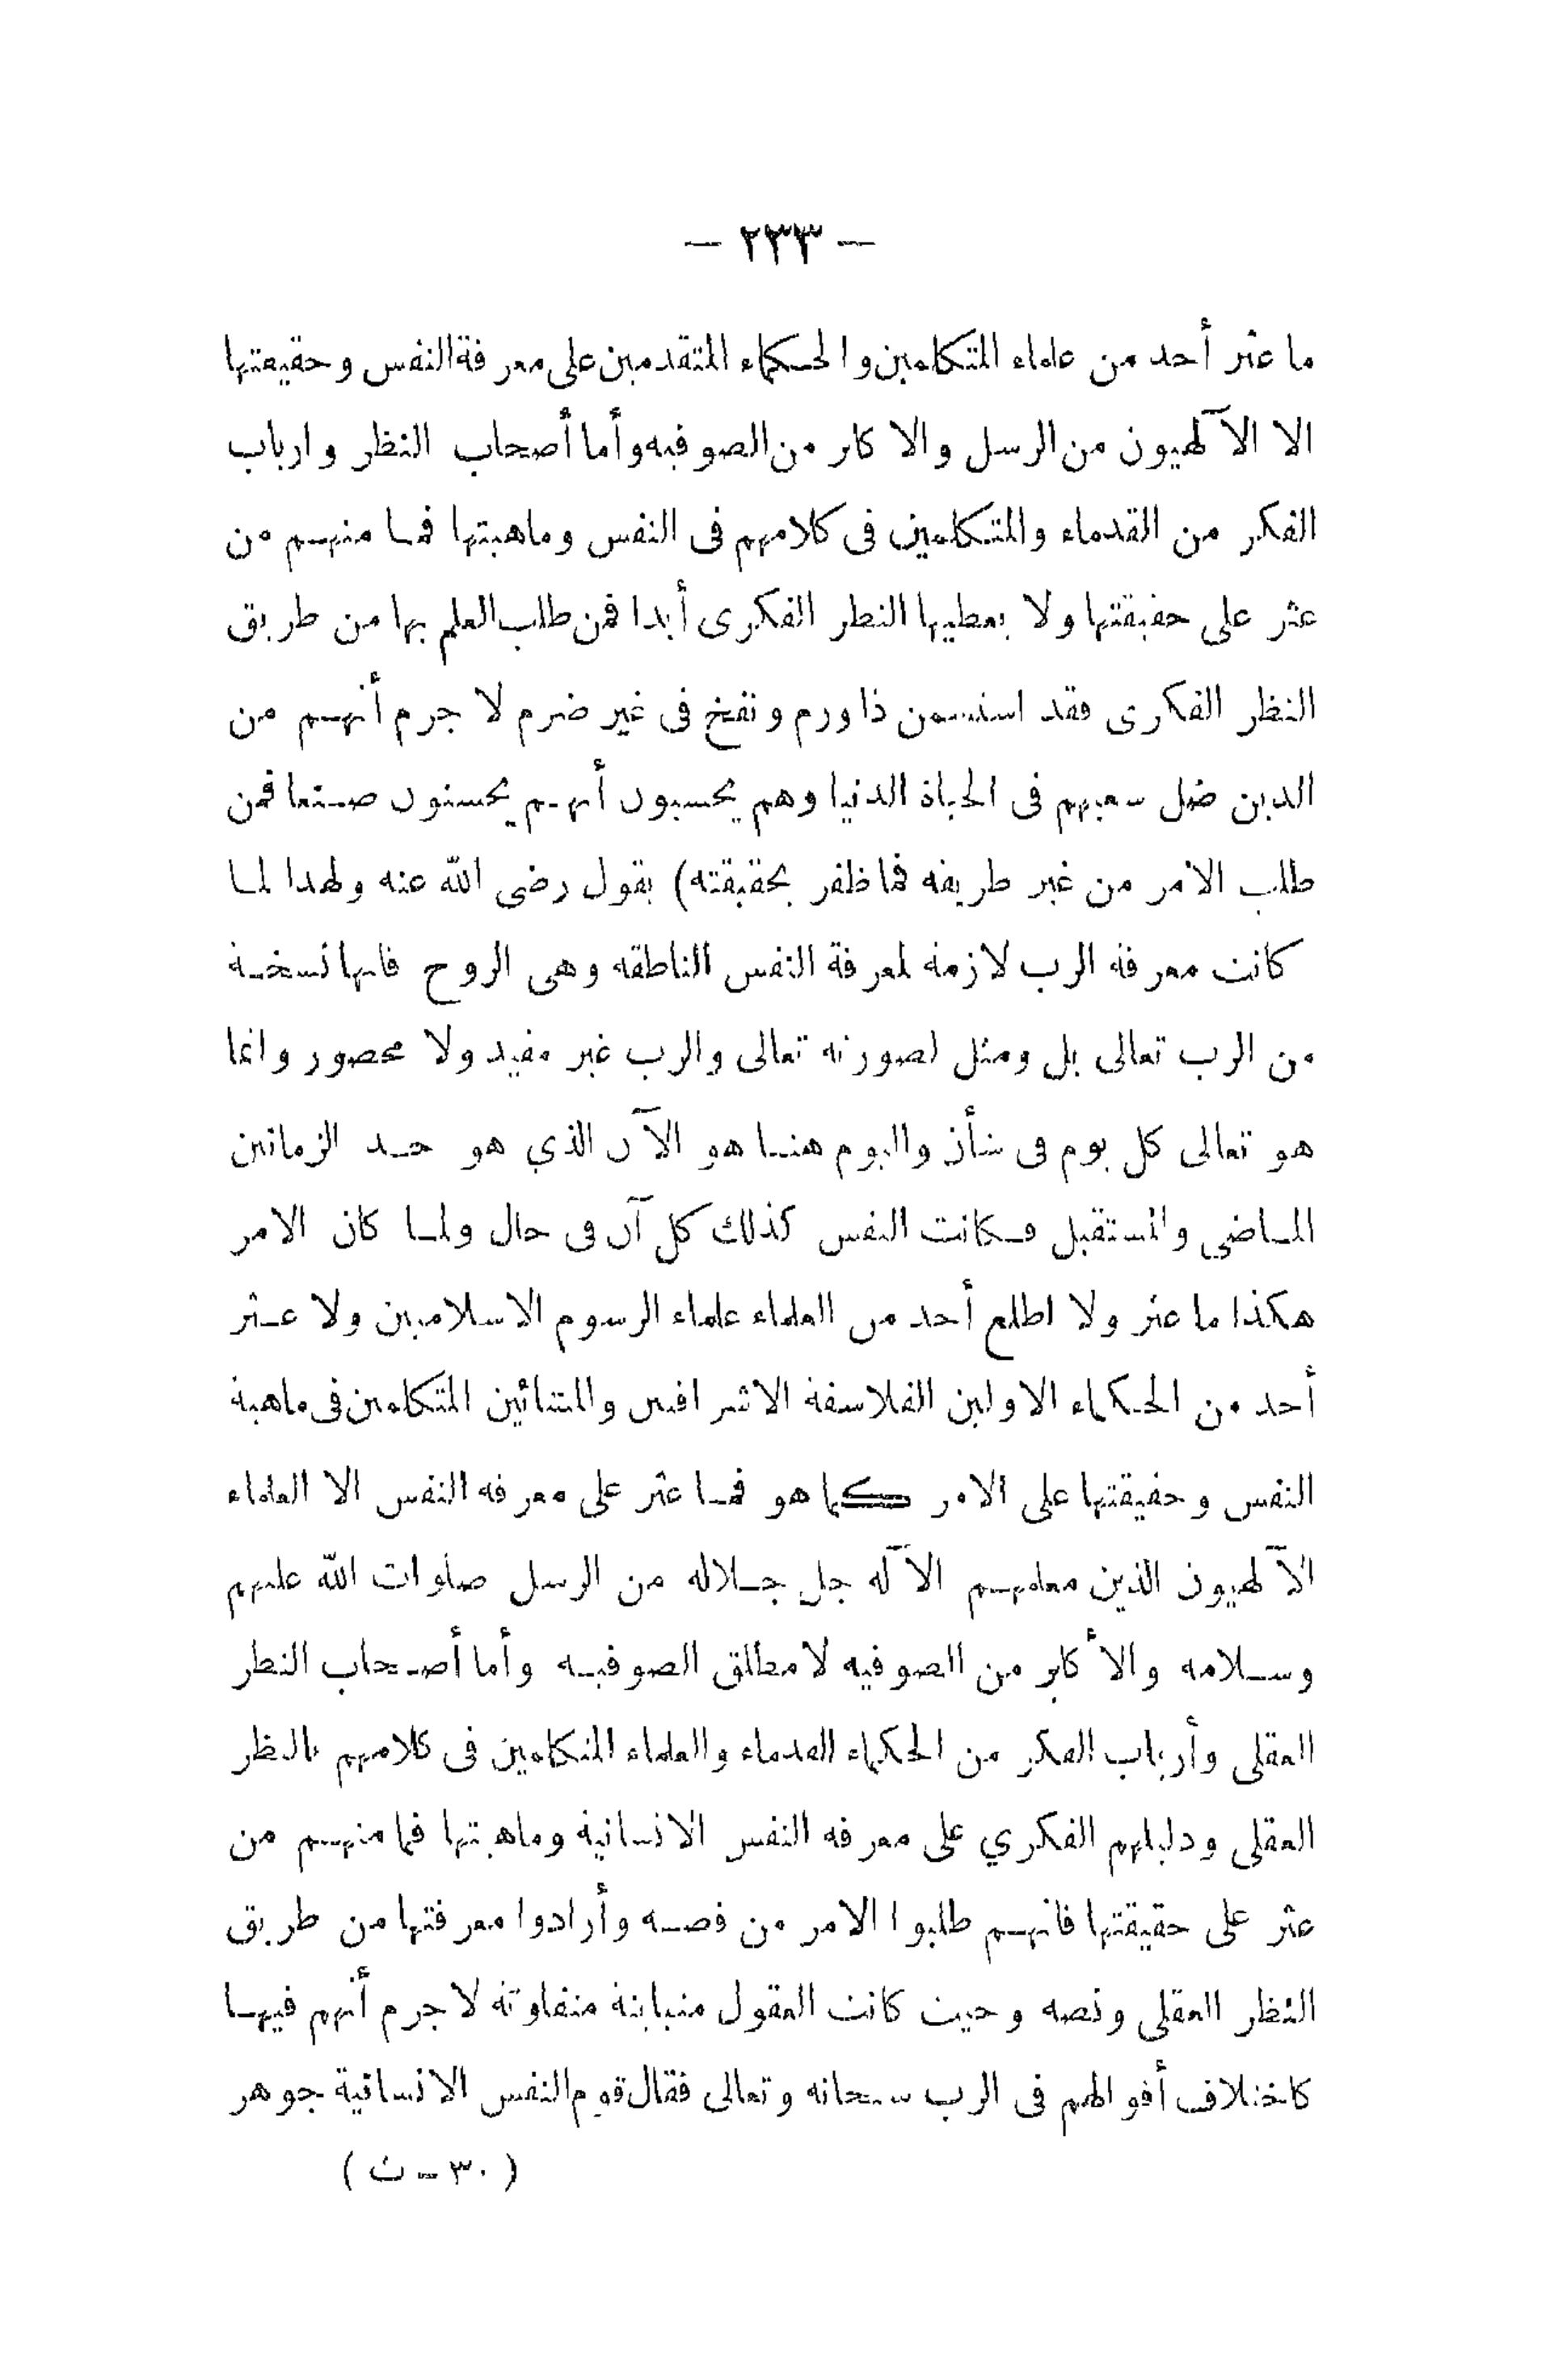 — ٢٣٣ —
ما عثر أحد من علماء المتكلمين والحكماء المتقدمين على معرفة النفس وحقيقتها
الا الآلهيون من الرسل والاكابر من الصوفيه وأما أصحاب النظر وارباب
الفكر من القدماء والمتكلمين فى كلامهم فى النفس وماهيتها فما منهم من
عثر على حقيقتها ولا يعطيها النظر الفكرى أبدا فمن طلب العلم بها من طريق
النظر الفكرى فقد استسمن ذا ورم ونفخ فى غير ضرم لا جرم أنهم من
الذين ضل سعيهم فى الحياة الدنيا وهم يحسبون أنهم يحسنون صنعا فمن
طلب الامر من غير طريقه فما ظفر بحقيقته) يقول رضى الله عنه ولهذا لما
كانت معرفة الرب لازمة لمعرفة النفس الناطقه وهى الروح فانها نسخة
من الرب تعالى بل ومثل لصورته تعالى والرب غير مقيد ولا محصور وانما
هو تعالى كل يوم فى شأن واليوم هنا هو الآن الذي هو حد الزمانين
الماضى والمستقبل فكانت النفس كذلك كل آن فى حال ولما كان الامر
هكذا ما عثر ولا اطلع أحد من العلماء علماء الرسوم الاسلاميين ولا عثر
أحد من الحكماء الاولين الفلاسفة الاشراقيين والمشائين المتكلمين فى ماهية
النفس وحقيقتها على الامر كما هو فما عثر على معرفه النفس الا العلماء
الآلهيون الذين معلمهم الآله جل جلاله من الرسل صلوات الله عليهم
وسلامه والأكابر من الصوفيه لا مطلق الصوفيه وأما أصحاب النظر
العقلى وأرباب الفكر من الحكماء القدماء والعلماء المتكلمين فى كلامهم بالنظر
العقلى ودليلهم الفكري على معرفه النفس الانسانية وماهيتها فما منهم من
عثر على حقيقتها فانهم طلبوا الامر من فصه وأرادوا معرفتها من طريق
النظر العقلى ونصه وحيث كانت العقول متباينة متفاوتة لا جرم أنهم فيها
كاختلاف أقوالهم فى الرب سبحانه وتعالى فقال قوم النفس الانسانية جوهر
(٣٠ - ث)